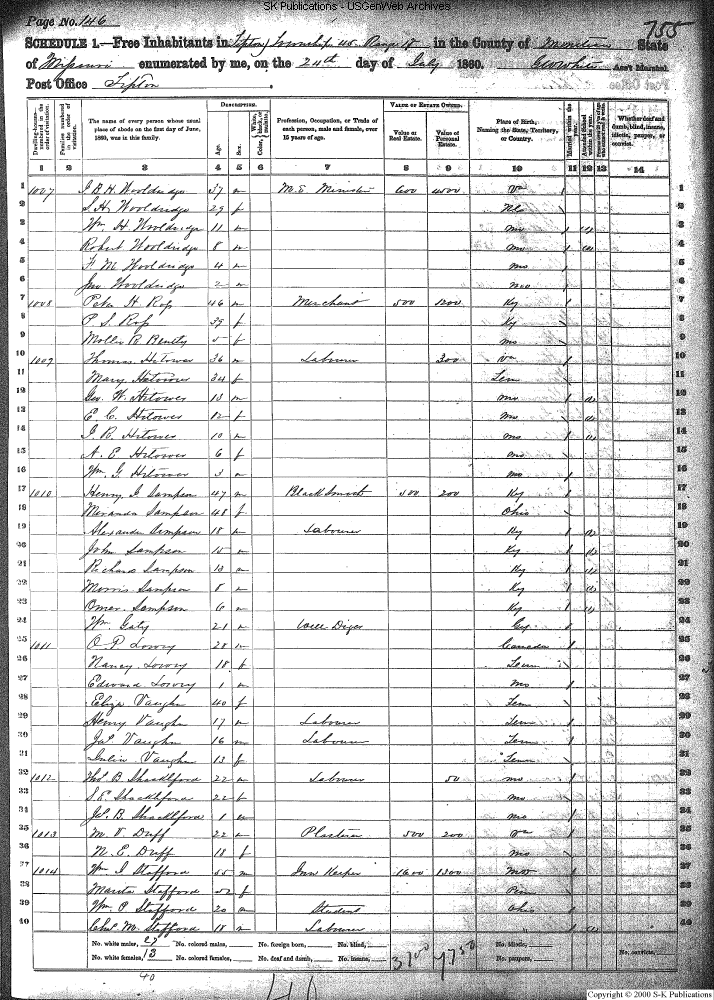 SK Publications - USGenWeb Archives
Page No. 146
755
SCHEDULE 1.—Free Inhabitants in Tipton Township 45 Range 18 in the County of Moniteau State
of Missouri enumerated by me, on the 24th day of July 1860. Ass't Marshal.
Post Office Tipton
Dwelling-houses numbered in the order of visitation. Families numbered in the order of visitation. The name of every person whose usual place of abode on the first day of June, 1860, was in this family. DESCRIPTION. Age. Sex. Color, White, black, or mulatto. Profession, Occupation, or Trade of each person, male and female, over 15 years of age. VALUE OF ESTATE OWNED. Value of Real Estate. Value of Personal Estate. Place of Birth, Naming the State, Territory, or Country. Married within the year. Attended School within the year. Whether deaf and dumb, blind, insane, idiotic, pauper, or convict.
1 2 3 4 5 6 7 8 9 10 11 12 13 14
1 1007 J B H Wooldridge 37 m M. E Minister 600 4500 Va 1
2 S. H. Wooldridge 29 f 2
3 Wm H Wooldridge 11 m Mo 3
4 Robert Wooldridge 8 m Mo 4
5 F M Wooldridge 4 m Mo 5
6 Jno Wooldridge 2 m Moo 6
7 1008 Peter H. Ross 46 m Merchant 500 1200 Ky 7
8 P S. Ross 39 f Ky 8
9 Mollie B. 5 f Mo 9
10 1009 Thomas Hitower 36 m Labourer 300 Va 10
11 Mary Hitower 34 f Tenn 11
12 Geo. W. Hitower 13 m Mo 12
13 E. C. Hitower 12 f Mo 13
14 J. R. Hitower 10 m Mo 14
15 A. E Hitower 6 f Mo 15
16 Wm. G. Hitower 3 m Mo 16
17 1010 Henry J Sampson 47 m Blacksmith 500 200 Ky 17
18 Meranda Sampson 48 f Ohio 18
19 Alexander Sampson 18 m Labourer Ky 19
20 John Sampson 15 m Ky 20
21 Richard Sampson 13 m Ky 21
22 Morris Sampson 8 m Ky 22
23 Omer Sampson 6 m Ky 23
24 Wm. Gaty 21 m Well Diger 24
25 1011 O. P. Lowry 28 m Canada 25
26 Nancy Lowry 18 f Tenn 26
27 Edward Lowry 1 m Mo 27
28 Eliza Vaughn 40 f Tenn 28
29 Henry Vaughn 17 m Labourer Tenn 29
30 Jas Vaughn 16 m Labourer Tenn 30
31 Vaughn 13 f Tenn 31
32 1012 Thos B Shacklford 22 m Labourer 50 Mo 32
33 S. E. Shacklford 22 f Mo 33
34 Jas. B. Shacklford 1 m Mo 34
35 1013 M. V Duff 22 m Plasterer 500 200 Va 35
36 N. E. Duff 18 f Mo 36
37 1014 Wm J Stafford 55 m Inn Keeper 1600 1300 37
38 Stafford 52 f 38
39 Wm P Stafford 20 m Student Ohio 39
40 Chas M. Stafford 18 m Labourer 40
No. white males, 27 No. colored males, No. foreign born, No. blind, 3700 4750 No. idiotic, No. convicts,
No. white females, 13 No. colored females, No. deaf and dumb, No. insane, No. paupers,
40
Copyright © 2000 S-K Publications